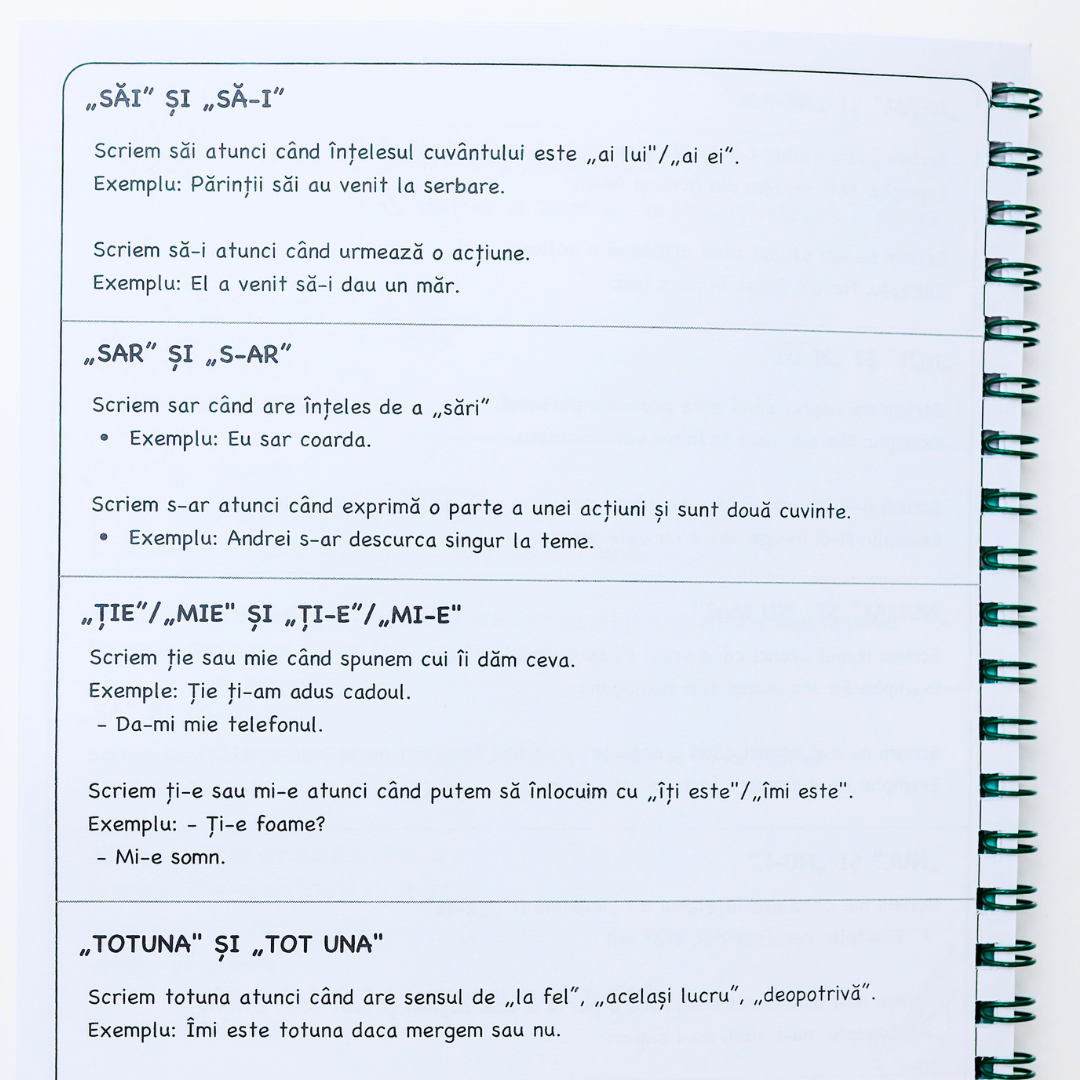 „SĂI” ȘI „SĂ-I”
Scriem săi atunci când înțelesul cuvântului este „ai lui"/„ai ei”.
Exemplu: Părinții săi au venit la serbare.
Scriem să-i atunci când urmează o acțiune.
Exemplu: El a venit să-i dau un măr.
„SAR” ȘI „S-AR”
Scriem sar când are înțeles de a „sări”
• Exemplu: Eu sar coarda.
Scriem s-ar atunci când exprimă o parte a unei acțiuni și sunt două cuvinte.
• Exemplu: Andrei s-ar descurca singur la teme.
„ȚIE”/„MIE" ȘI „ȚI-E”/„MI-E"
Scriem ție sau mie când spunem cui îi dăm ceva.
Exemple: Ție ți-am adus cadoul.
- Da-mi mie telefonul.
Scriem ți-e sau mi-e atunci când putem să înlocuim cu „îți este"/„îmi este".
Exemplu: - Ți-e foame?
- Mi-e somn.
„TOTUNA" ȘI „TOT UNA"
Scriem totuna atunci când are sensul de „la fel”, „același lucru”, „deopotrivă”.
Exemplu: Îmi este totuna daca mergem sau nu.